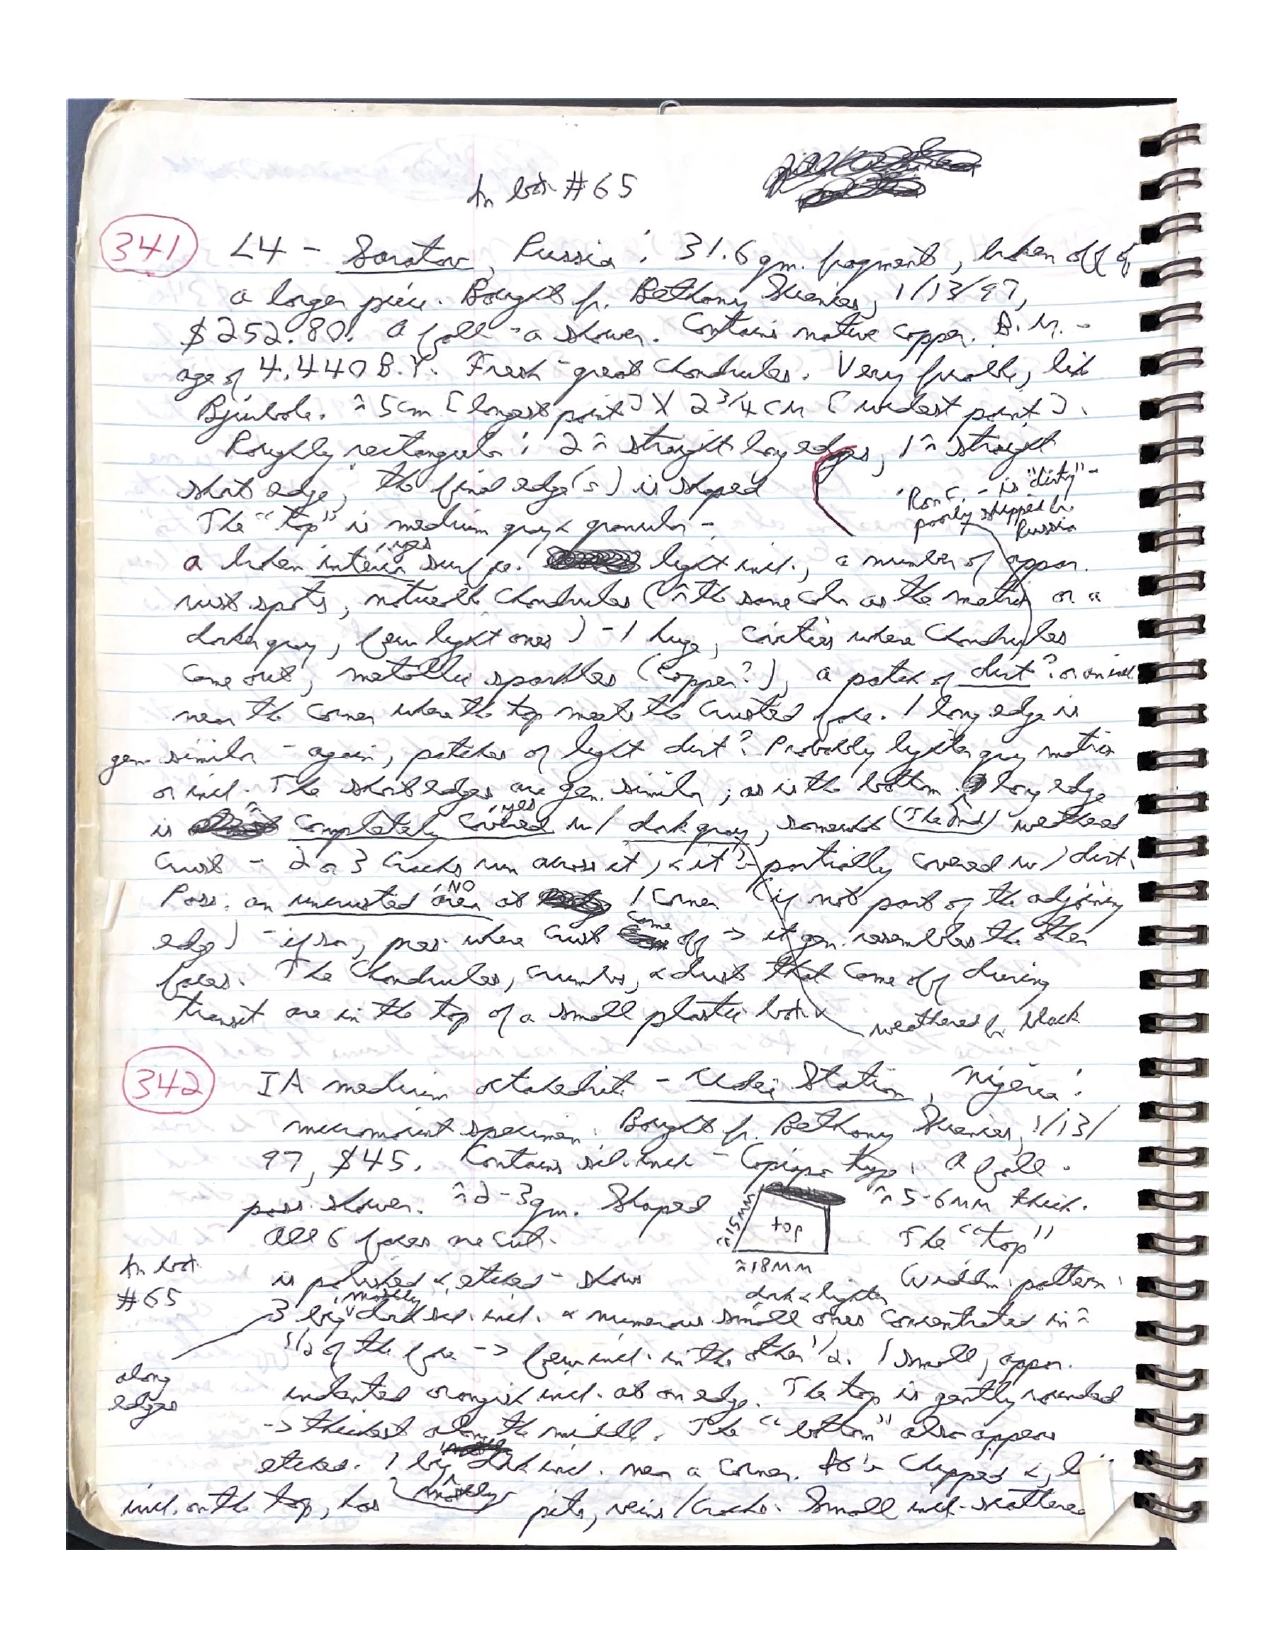 In bot. #65
341 L4 - Saratov, Russia: 31.6 gm. fragment, broken off of
a larger piece. Bought fr. Bethany Sciences, 1/13/97,
$252.80. A fall - a shower. Contains native copper. B.M. -
age of 4.440 B.Y. Fresh - great chondrules. Very friable, like
Bjurbole. ≈ 5cm [longest point] X 2 3/4 cm [widest point].
Roughly rectangular: 2 ≈ straight long edges, 1 ≈ straight
short edge, the final edge(s) is shaped
Ron C. - is "dirty" -
poorly shipped fr.
Russia
The "top" is medium gray & granular -
yes
a broken interior surface. light incl., a number of appar.
rust spots, noticeable chondrules (≈ the same color as the matrix or a
darker gray, few light ones) - 1 huge, cavities where chondrules
came out, metallic sparkles (copper?), a patch of dirt? or an incl.
near the corner where the top meets the crusted face. 1 long edge is
gen. similar - again, patches of light dirt? Probably lighter gray matrix
or incl. The short edges are gen. similar, as is the bottom. long edge
yes
is ≈ completely covered w/ dark gray, somewhat (The 2nd) weathered
crust - 2 or 3 cracks run across it, & it is partially covered w/ dirt.
NO
Poss. an uncrusted area at 1 corner (if not part of the adjoining
come
edge) - if so, pres. where crust off -> it gen. resembles the other
faces. The chondrules, crumbs, & dust that came off during
transit are in the top of a small plastic box.
weathered fr. black
342 IA medium octahedrite - Udei Station, Nigeria:
micromount specimen. Bought fr. Bethany Sciences, 1/13/
97, $45. Contains sil. incl. - Copiapo type. A fall -
poss. shower. ≈ 2-3 gm. Shaped
≈15MM
top
≈18MM
≈ 5-6MM thick.
All 6 faces are cut. The "top"
In bot.
#65
is polished & etched - shows Widm. pattern,
mostly
dark & lighter
3 big dark sil. incl. & numerous small ones concentrated in ≈
along
edges
1/2 of the face -> few incl. in the other 1/2. 1 small, appar.
indented orangish incl. at an edge. The top is gently rounded
-> thickest along the middle. The "bottom" also appears
etched. 1 big dark incl. near a corner. It's chipped &,
incl. on the top, has mostly pits, veins/cracks. Small incl. scattered